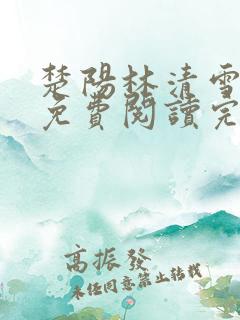 楚陽林清雪
免費閱讀完
高振發
未经同意禁止转载